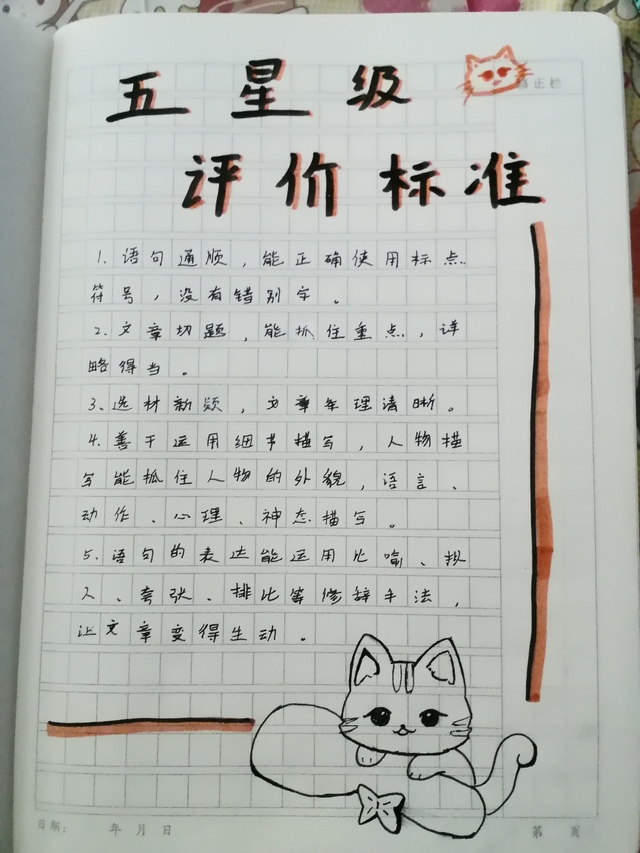 五星级
修正栏
评价标准
1.语句通顺,能正确使用标点
符号,没有错别字。
2.文章切题,能抓住重点,详
略得当。
3.选材新颖,文章条理清晰。
4.善于运用细节描写,人物描
写能抓住人物的外貌,语言、
动作、心理、神态描写。
5.语句的表达能运用比喻、拟
人、夸张、排比等修辞手法,
让文章变得生动。
日期: 年 月 日 第 页